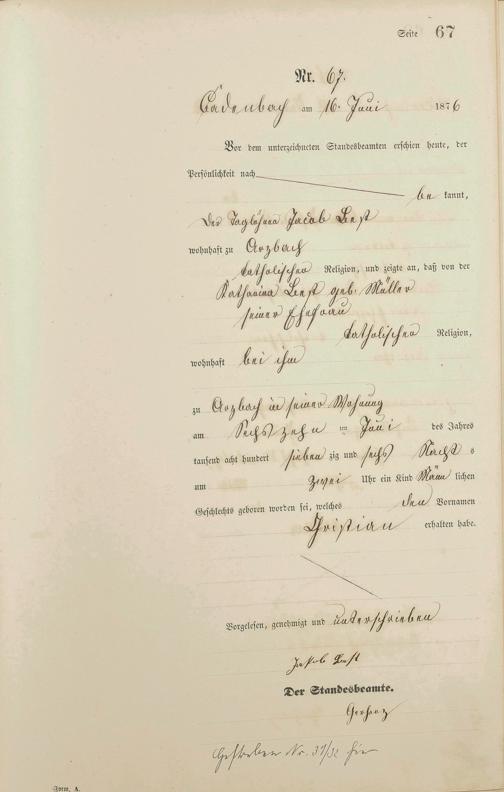 Seite 67
Nr. 67.
Cadenbach am 16. Juni 1876
Vor dem unterzeichneten Standesbeamten erschien heute, der
Persönlichkeit nach
be kannt,
Der Taglöhner Jacob Best
wohnhaft zu Arzbach
katholischer Religion, und zeigte an, daß von der
Katharina Best geb. Müller
seiner Ehefrau
katholischer Religion,
wohnhaft bei ihm
zu Arzbach in seiner Wohnung
am Sechs zehn im Juni des Jahres
tausend acht hundert sieben zig und sechs Nacht s
um zwei Uhr ein Kind Männ lichen
Geschlechts geboren worden sei, welches den Vornamen
Christian erhalten habe.
Vorgelesen, genehmigt und unterschrieben
Jakob Best
Der Standesbeamte.
Gestorben Nr. 31/32 hier
Form. A.